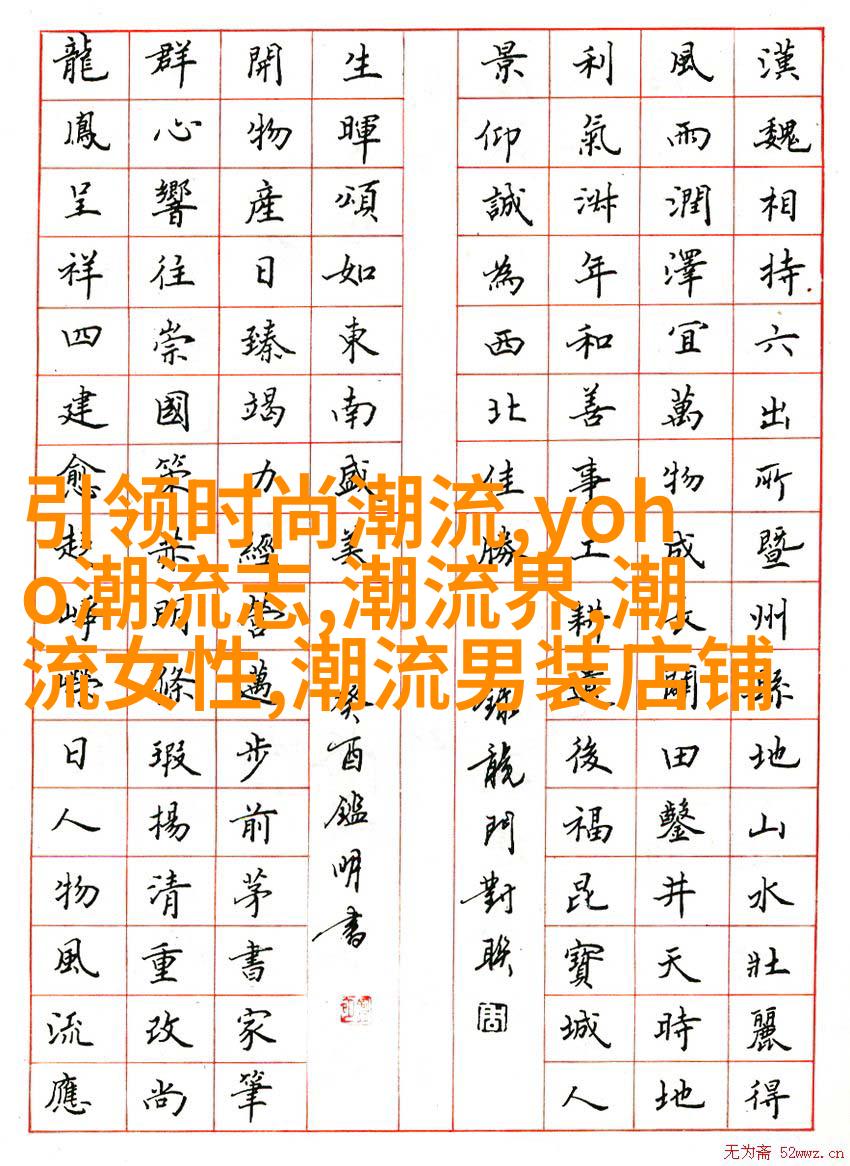 漢魏相持六出所暨州縣地山水壯麗得
風雨潤澤宜萬物成開田鑿井天時地
利氣淑年和善事工耕後福昆寶城人
景仰誠為西北佳勝
錄龍門對聯
生暉頌如東南盛美
癸酉鑑明書
開物產日臻竭力經營邁步前茅書家筆
群心響往崇國策明條瑕揚清重改尚
龍鳳呈祥四建愈趨崢嶸日人物風流應
引领时尚潮流,yoh
o潮流志,潮流界,潮
流女性,潮流男装店铺
无为斋 52wwz.cn